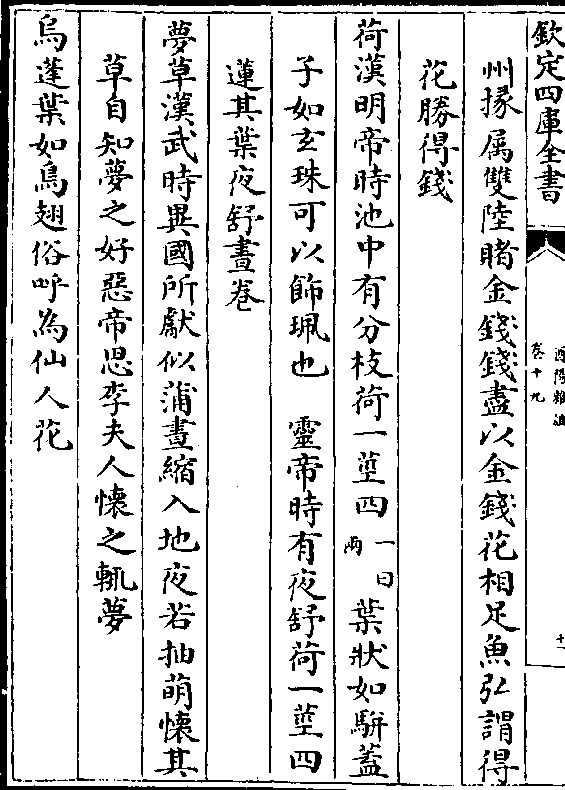 欽定四庫全書
酉陽雜俎
卷十九
十一
州掾属雙陸賭金錢錢盡以金錢花相足魚弘謂得
花勝得錢
荷漢明帝時池中有分枝荷一莖四一曰兩葉狀如駢蓋
子如玄珠可以飾珮也　靈帝時有夜舒荷一莖四
蓮其葉夜舒晝卷
夢草漢武時異國所獻似蒲晝縮入地夜若抽萌懷其
草自知夢之好惡帝思李夫人懷之輒夢
烏蓬葉如鳥翅俗呼為仙人花